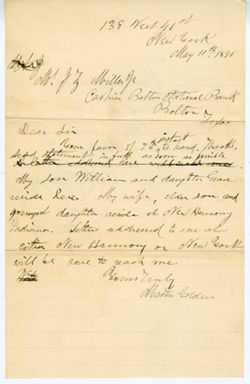 139 West 41st
New York
May 11th 1891
Mr. J Z Miller Jr
Cashier Belton National Bank
Belton
Texas
Dear Sir
Your favor of 7th instant to hand. Thanks.
Send statement in full as soon as possible
My son William and daughter Grace
reside here. My wife, elder son and
youngest daughter reside at New Harmony
Indiana. Letters addressed to me at
either New Harmony or New York
will be sure to reach me
Yours Truly
Martin Golden